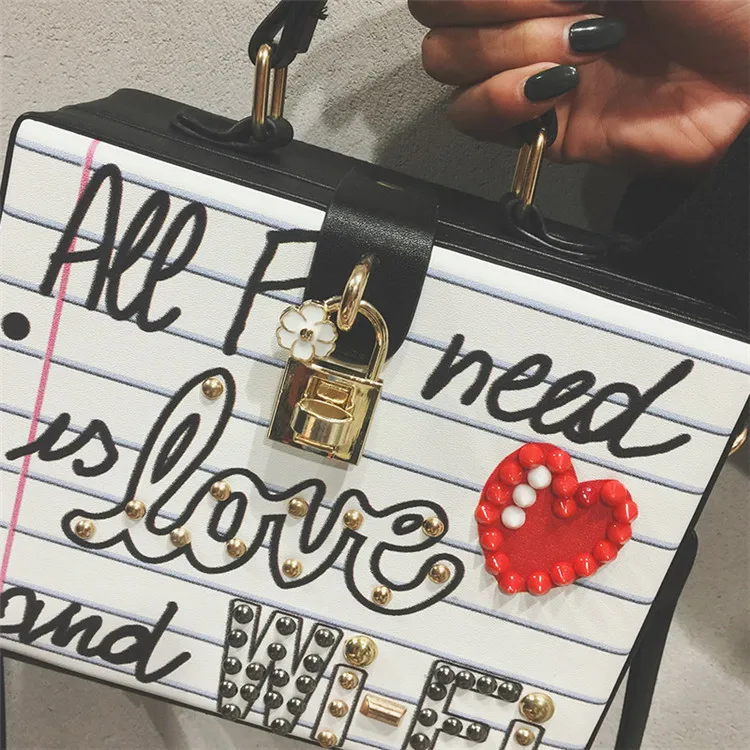 All F need
is love
and WI-FI